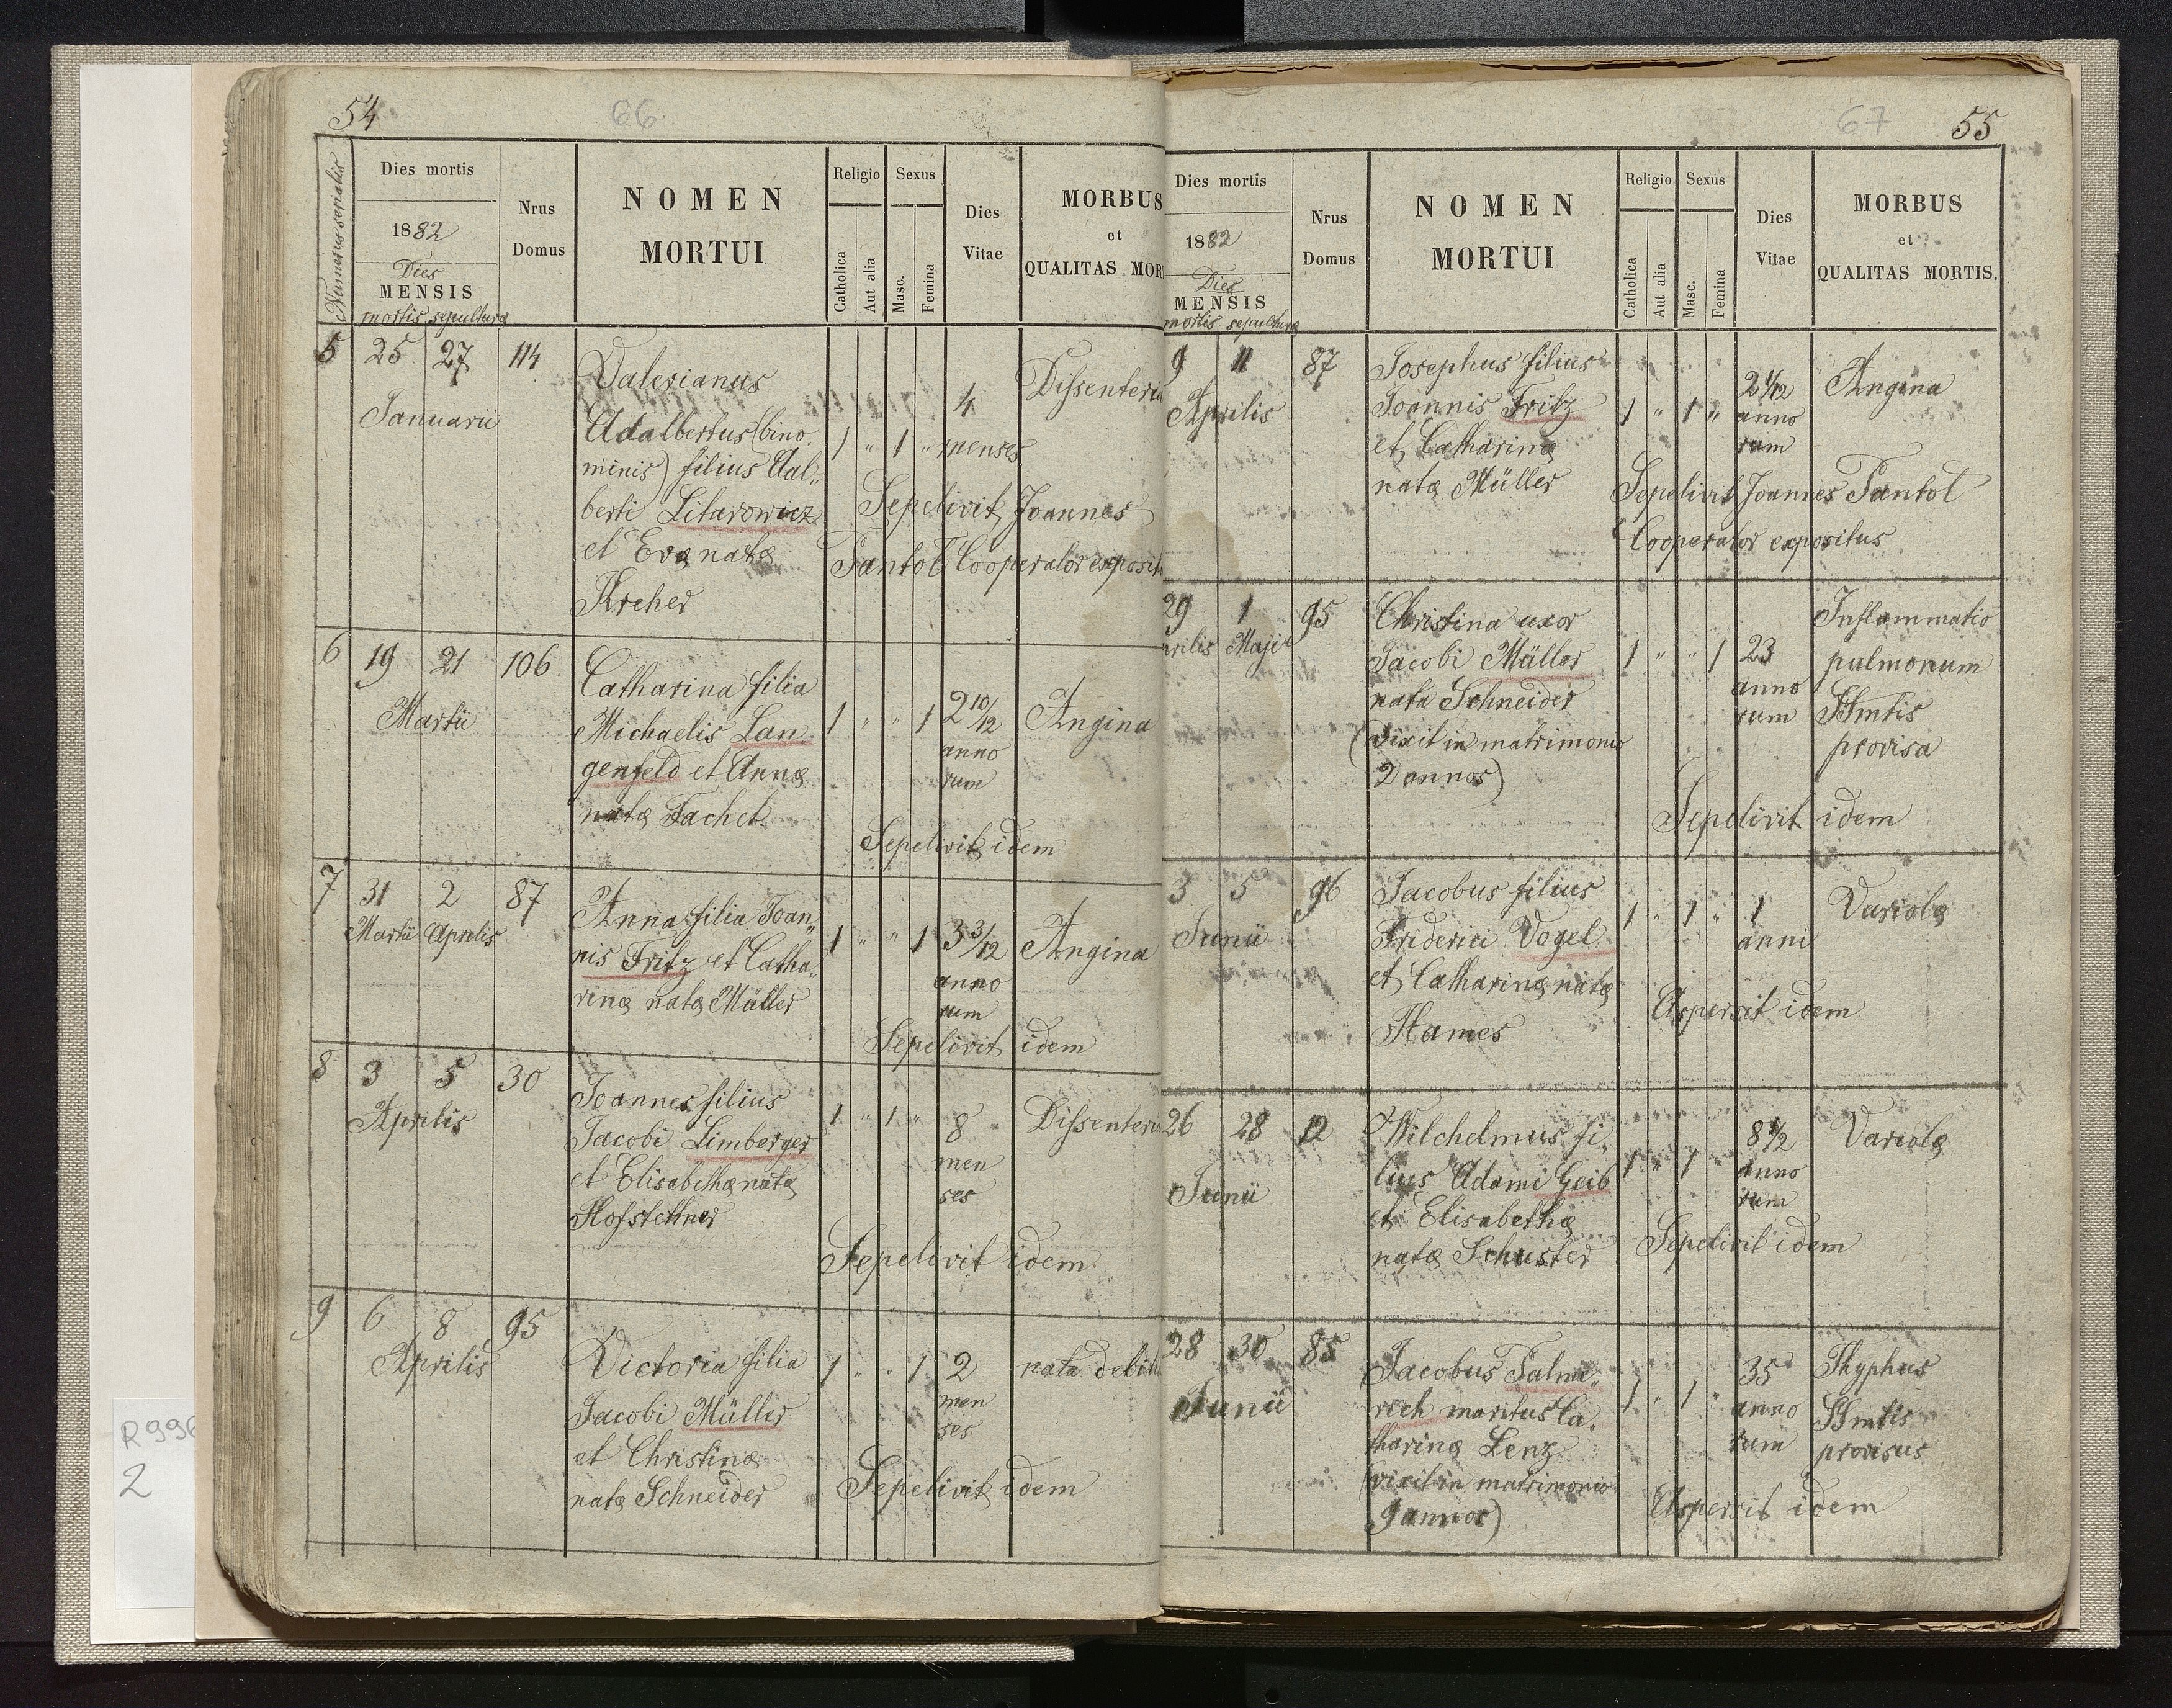 54
66
Numerus serialis
Dies mortis
1882
Dies
MENSIS
mortis sepulturæ
Nrus
Domus
NOMEN
MORTUI
Religio
Catholica
Aut alia
Sexus
Masc.
Femina
Dies
Vitae
MORBUS
et
QUALITAS MOR
5 25 27 114
Januarii
Valerianus
Adalbertus (bino
minis) filius Aal„
berti Litarowicz
et Evæ natæ
Kreher
1 „ 1 „
4
menses
Dissenteria
Sepelivit Joannes
Pantoł Cooperator exposit
6 19 21 106
Martii
Catharina filia
Michaelis Lan
genfeld et Annæ
natæ Fachet
1 „ „ 1
2 10/12
anno
rum
Angina
Sepelivit idem
7 31 2 87
Martii Aprilis
Anna filia Joan„
nis Fritz et Catha„
rinæ natæ Müller
1 „ „ 1
3 3/12
anno
rum
Angina
Sepelivit idem
8 3 5 30
Aprilis
Joannes filius
Jacobi Limberger
et Elisabethæ natæ
Hofstettner
1 „ 1 „
8
men
ses
Dissenteria
Sepelivit idem
9 6 8 95
Aprilis
Victoria filia
Jacobi Müller
et Christinæ
natæ Schneider
1 „ „ 1
2
men
ses
nata debil
Sepelivit idem
R996
2
67
55
Dies mortis
1882
Dies
MENSIS
mortis sepulturæ
Nrus
Domus
NOMEN
MORTUI
Religio
Catholica
Aut alia
Sexus
Masc.
Femina
Dies
Vitae
MORBUS
et
QUALITAS MORTIS.
9 11 87
Aprilis
Josephus filius
Joannis Fritz
et Catharinæ
natæ Müller
1 „ 1 „
2 1/12
anno
rum
Angina
Sepelivit Joannes Pantoł
Cooperator expositus
29 1 95
rilis Maji
Christina uxor
Jacobi Müller
nata Schneider
(vixit in matrimonio
2 annos)
1 „ „ 1
23
anno
rum
Inflammatio
pulmonum
SSmtis
provisa
Sepelivit idem
3 5 96
Junii
Jacobus filius
Friderici Vogel
et Catharinæ natæ
Hames
1 „ 1 „
1
anni
Variolæ
Aspersit idem
26 28 12
Junii
Wilchelmus fi„
lius Adami Geib
et Elisabethæ
natæ Schuster
1 „ 1
8 1/2
anno
rum
Variolæ
Sepelivit idem
28 30 85
Junii
Jacobus Salme„
roch maritus Ca„
tharinæ Lenz
(vixit in matrimonio
9 annos)
1 „ 1 „
35
anno
rum
Thyphus
SSmtis
provisus
Aspersit idem